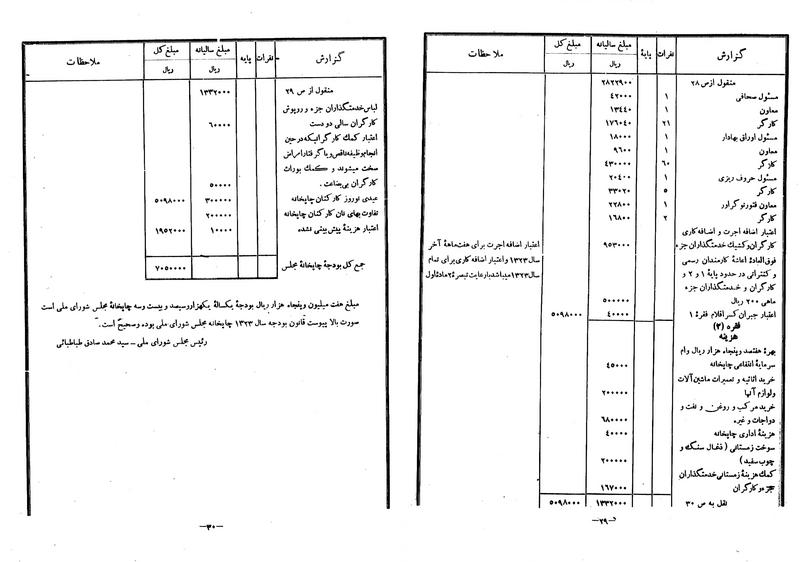 گزارش نفرات پایهٔ مبلغ سالیانه مبلغ کل ملاحظات
ریال ریال
منقول از ص ۲۸ ۲۸۲۲۹۰۰
مسئول صحافی ۱ ۴۲۰۰۰
معاون ۱ ۱۳۴۴۰
کارگر ۲۱ ۱۷۶۰۴۰
مسئول اوراق بهادار ۱ ۱۸۰۰۰
معاون ۱ ۹۶۰۰
کارگر ۶۰ ۴۳۰۰۰۰
مسئول حروف ریزی ۱ ۲۰۴۰۰
کارگر ۵ ۳۳۰۲۰
معاون فتوروتوگراور ۱ ۲۲۸۰۰
کارگر ۲ ۱۶۸۰۰
اعتبار اضافه اجرت و اضافه کاری
کارگران و کشیک خدمتگذاران جزء ۹۵۳۰۰۰ اعتبار اضافه اجرت برای هفت ماههٔ آخر
فوق العادهٔ اعانهٔ کارمندان رسمی سال ۱۳۲۳ و اعتبار اضافه کاری برای تمام
و کنتراتی در حدود پایهٔ ۱ و ۲ و سال ۱۳۲۳ میباشد بارعایت تبصرهٔ ۲ مادهٔ اول
کارگران و خدمتگذاران جزء
ماهی ۲۰۰ ریال ۵۰۰۰۰۰
اعتبار جبران کسر اقلام فقرهٔ ۱ ۴۰۰۰۰ ۵۰۹۸۰۰۰
فقره (۲)
هزینه
بهرهٔ هفتصد و پنجاه هزار ریال وام
سرمایهٔ انتفاعی چاپخانه ۴۵۰۰۰
خرید اثاثیه و تعمیرات ماشین آلات
ولوازم آنها ۲۰۰۰۰۰
خرید مرکب و روغن و نفت و
دواجات و غیره ۶۸۰۰۰۰
هزینهٔ اداری چاپخانه ۴۰۰۰۰
سوخت زمستانی (ذغال سنگ و
چوب سفید) ۲۰۰۰۰۰
کمک هزینهٔ زمستانی خدمتگذاران
جزء و کارگران ۱۶۷۰۰۰
نقل به ص ۳۰ ۱۳۳۲۰۰۰ ۵۰۹۸۰۰۰
–۲۹–
گزارش نفرات پایه مبلغ سالیانه مبلغ کل ملاحظات
ریال ریال
منقول از ص ۲۹ ۱۳۳۲۰۰۰
لباس خدمتگذاران جزء و روپوش
کارگران سالی دو دست ۶۰۰۰۰
اعتبار کمک کارگرانیکه در حین
انجام وظیفه ناقص و یا گرفتار امراض
سخت میشوند و کمک بوراث
کارگران بی بضاعت . ۵۰۰۰۰
عیدی نوروز کارکنان چاپخانه ۳۰۰۰۰۰ ۵۰۹۸۰۰۰
تفاوت بهای نان کارکنان چاپخانه ۲۰۰۰۰۰
اعتبار هزینهٔ پیش بینی نشده ۱۰۰۰۰ ۱۹۵۲۰۰۰
جمع کل بودجهٔ چاپخانهٔ مجلس ۷۰۵۰۰۰۰
مبلغ هفت میلیون و پنجاه هزار ریال بودجهٔ یکسالهٔ یکهزار و سیصد و بیست و سه چاپخانهٔ مجلس شورای ملی است
صورت بالا پیوست قانون بودجه سال ۱۳۲۳ چاپخانه مجلس شورای ملی بوده و صحیح است .
رئیس مجلس شورای ملی – سید محمد صادق طباطبائی
–۳۰–